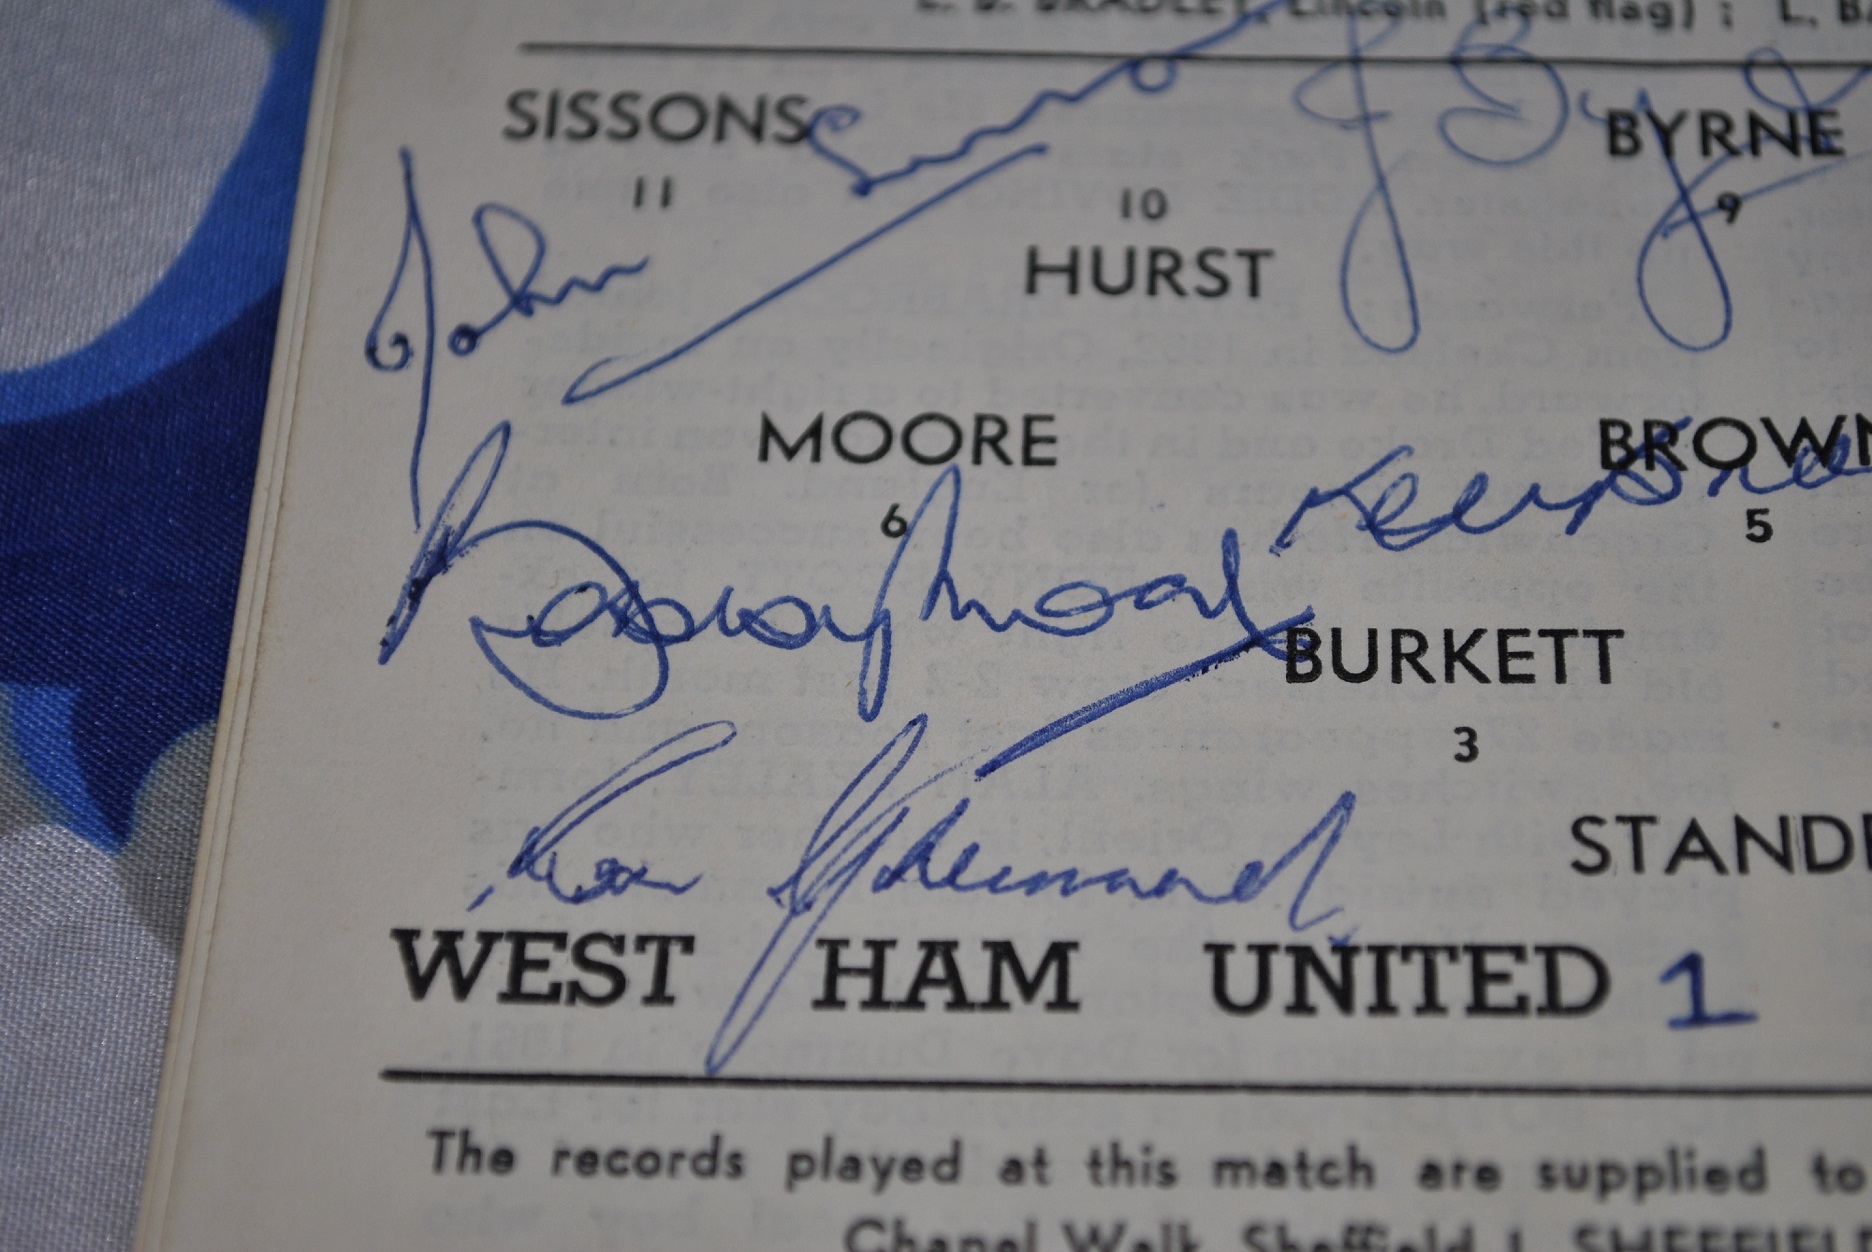 L. B. BRADLEY, Lincoln (red flag) ; L. BA
SISSONS John Sissons J Byrne BYRNE
11 10 9
HURST
MOORE BROWN
6 5
Bobby Moore Ken Brown
BURKETT
3
STANDE
WEST HAM UNITED 1
The records played at this match are supplied to
Chapel Walk, Sheffield 1. SHEFFIEL